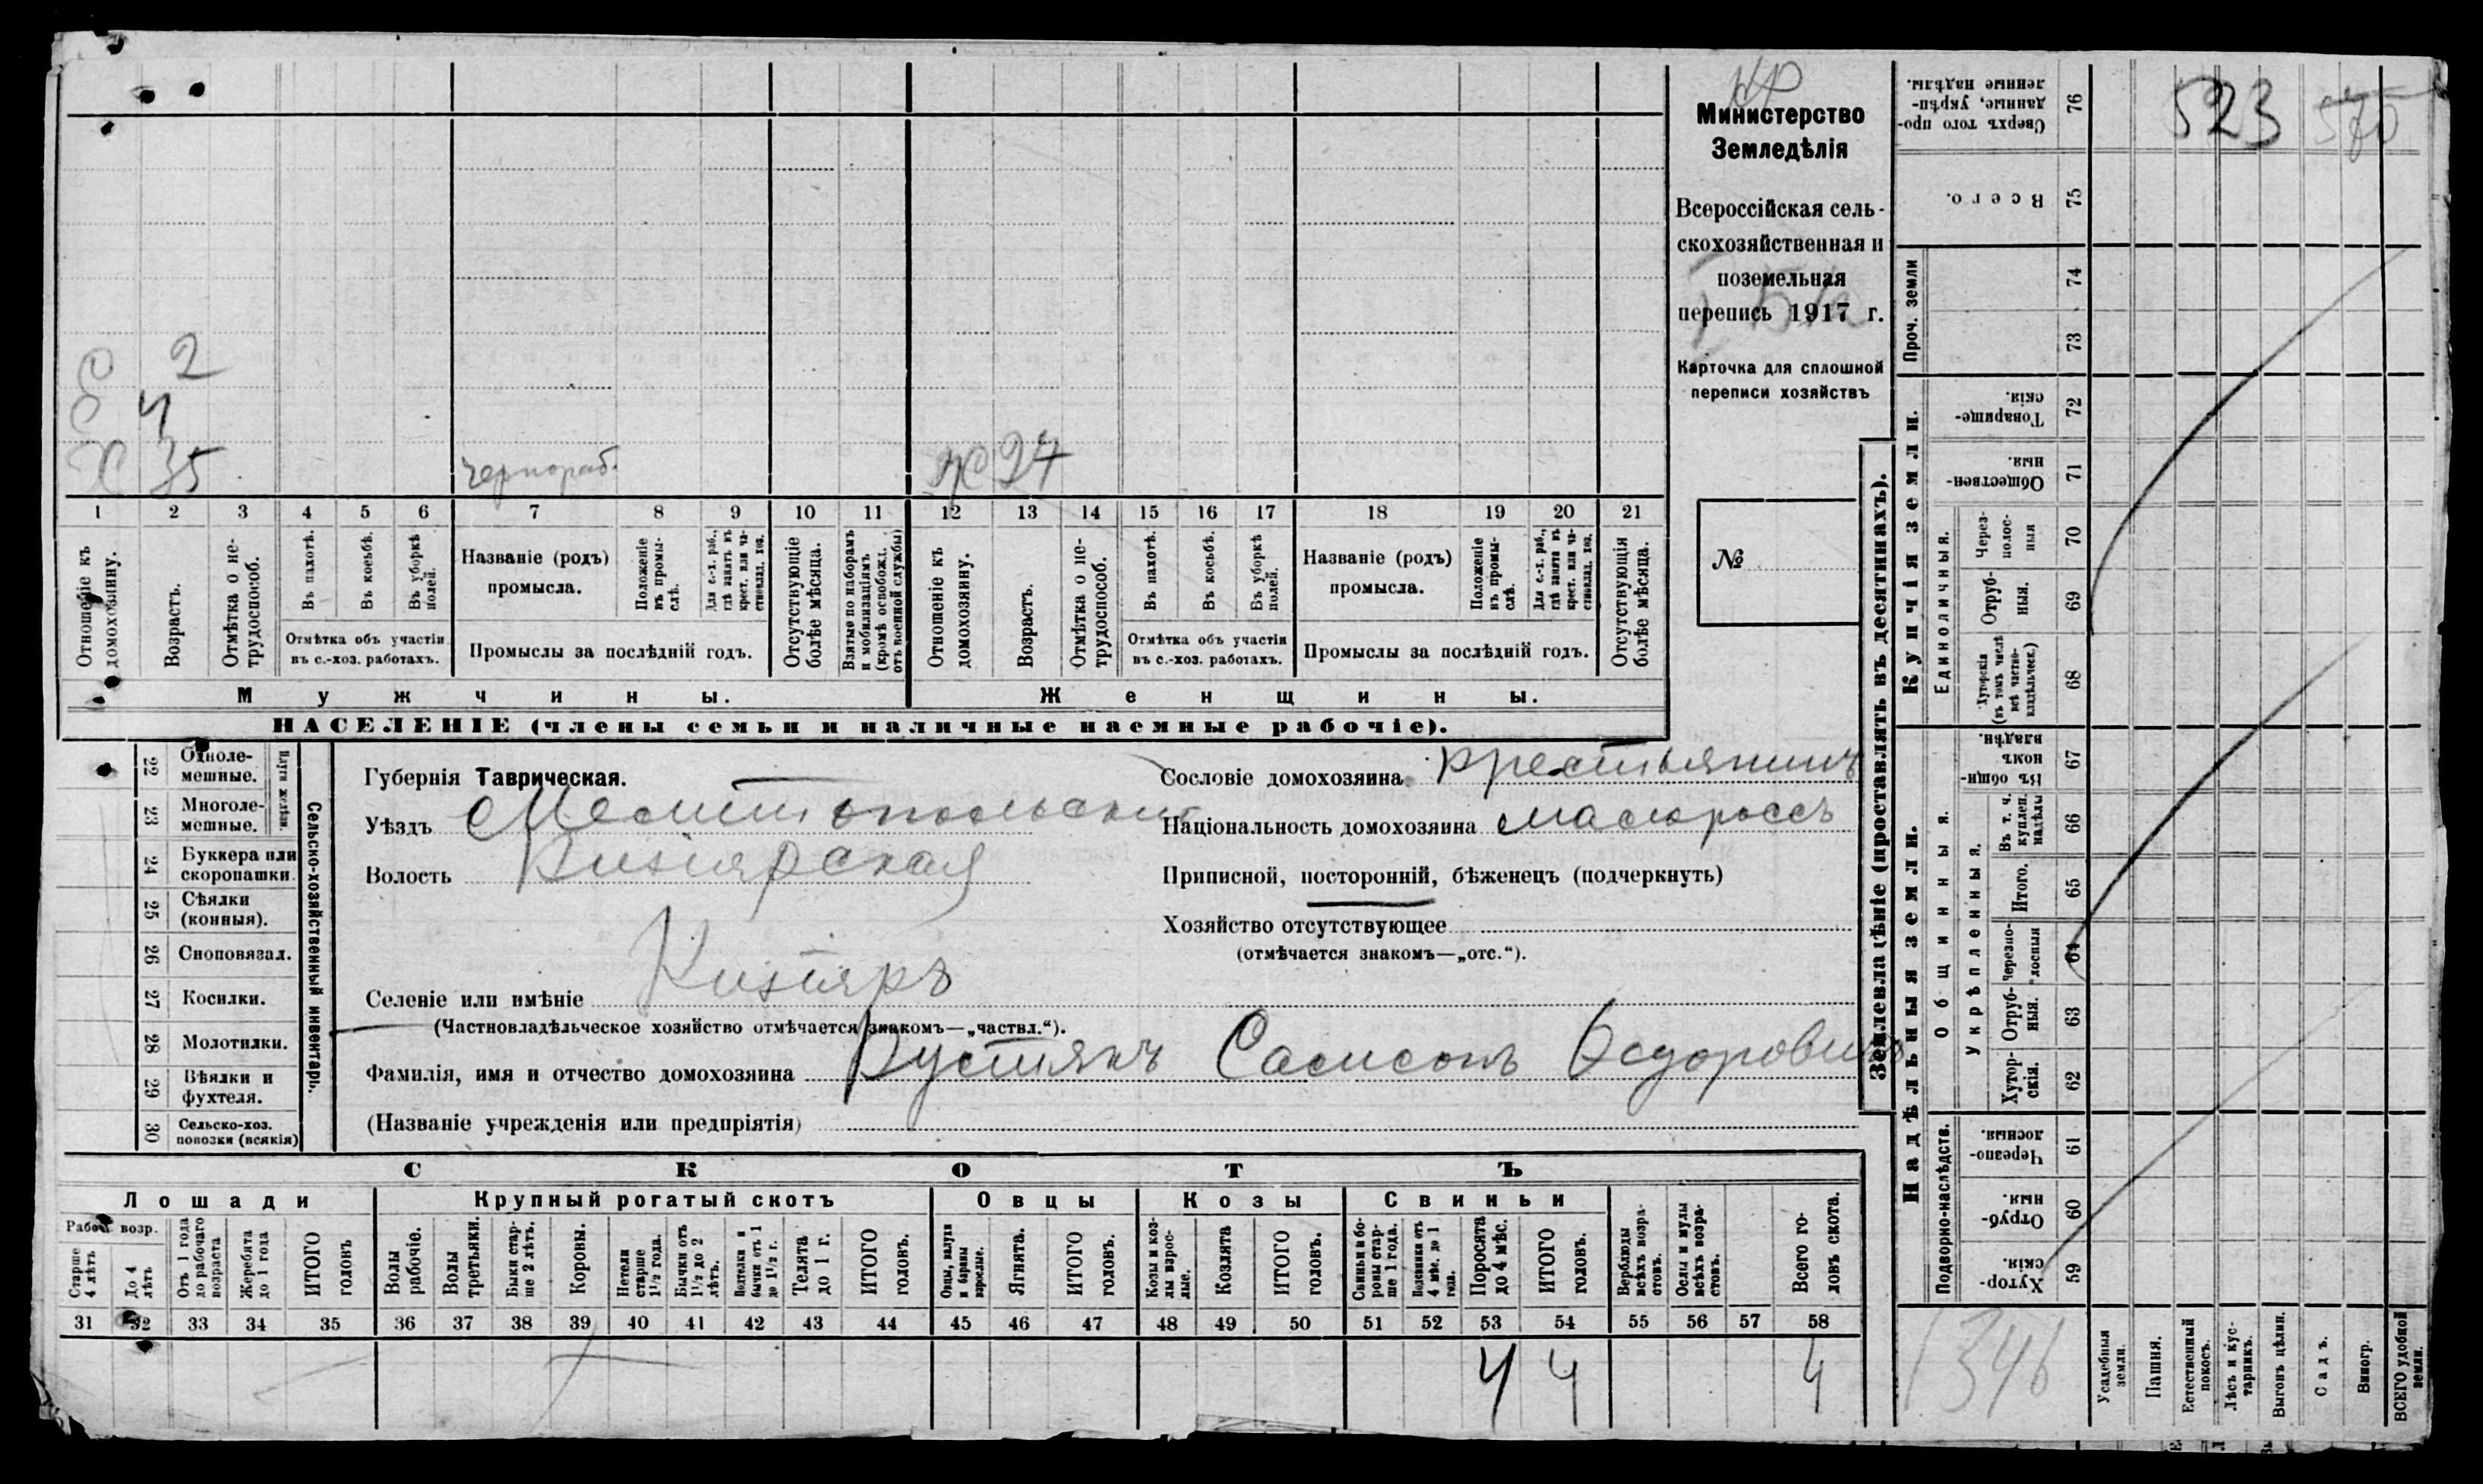 КР
Министерство
Земледѣлія
Всероссійская сель-
скохозяйственная и
поземельная
перепись 1917 г.
Карточка для сплошной
переписи хозяйствъ
№
2
4
Х 35
чернораб.
Ж 27
1 2 3 4 5 6 7 8 9 10 11 12 13 14 15 16 17 18 19 20 21
Отношеніе къ домохозяину.
Возрастъ.
Отмѣтка о не-трудоспособ.
Въ пахотѣ.
Въ косьбѣ.
Въ уборкѣ полей.
Отмѣтка объ участіи
въ с.-хоз. работахъ.
Названіе (родъ)
промысла.
Положеніе въ промы-слѣ.
Для с.-х. раб., гдѣ занятъ въ крест. или ча-стновлад. хоз.
Промыслы за послѣдній годъ.
Отсутствующіе болѣе мѣсяца.
Взятые по наборамъ и мобилизаціямъ (кромѣ освобожд. отъ военной службы)
Отношеніе къ домохозяину.
Возрастъ.
Отмѣтка о не-трудоспособ.
Въ пахотѣ.
Въ косьбѣ.
Въ уборкѣ полей.
Отмѣтка объ участіи
въ с.-хоз. работахъ.
Названіе (родъ)
промысла.
Положеніе въ промы-слѣ.
Для с.-х. раб., гдѣ занята въ крест. или ча-стновлад. хоз.
Промыслы за послѣдній годъ.
Отсутствующія болѣе мѣсяца.
Мужчины.
Женщины.
НАСЕЛЕНІЕ (члены семьи и наличные наемные рабочіе).
22 Одноле-мешные.
23 Многоле-мешные.
Плуги желѣзн.
24 Буккера или скоропашки.
25 Сѣялки (конныя).
26 Сноповязал.
27 Косилки.
28 Молотилки.
29 Вѣялки и фухтеля.
30 Сельско-хоз. повозки (всякія)
Сельско-хозяйственный инвентарь.
Губернія Таврическая.
Уѣздъ Мелитопольский
Волость Кизіярская
Селеніе или имѣніе Кизіяръ
(Частновладѣльческое хозяйство отмѣчается знакомъ—„частвл.“).
Сословіе домохозяина крестьянинъ
Національность домохозяина малороссъ
Приписной, посторонній, бѣженецъ (подчеркнуть)
Хозяйство отсутствующее
(отмѣчается знакомъ—„отс.“).
Фамилія, имя и отчество домохозяина Кустянъ Самсонъ Ѳедоровичъ
(Названіе учрежденія или предпріятія)
СКОТЪ
Лошади
Крупный рогатый скотъ
Овцы
Козы
Свиньи
Рабоч. возр.
Старше 4 лѣтъ
До 4 лѣтъ
Отъ 1 года до рабочаго возраста
Жеребята до 1 года
ИТОГО головъ
Волы рабочіе.
Волы третьяки.
Быки стар-ше 2 лѣтъ.
Коровы.
Нетели старше 1½ года.
Бычки отъ 1½ до 2 лѣтъ.
Бычки отъ 1 до 1½ г.
Телята до 1 г.
ИТОГО головъ.
Овцы, валухи и бараны взрослые.
Ягнята.
ИТОГО головъ.
Козы и коз-лы взрос-лые.
Козлята
ИТОГО головъ.
Свиньи и бо-ровы стар-ше 1 года.
Подсвинки отъ 4 мѣс. до 1 года.
Поросята до 4 мѣс.
ИТОГО головъ.
Верблюды всѣхъ возра-стовъ.
Ослы и мулы всѣхъ возра-стовъ.
Всего го-ловъ скота.
31 32 33 34 35 36 37 38 39 40 41 42 43 44 45 46 47 48 49 50 51 52 53 54 55 56 57 58
4 4 4
Землевладѣніе (проставлять въ десятинахъ).
Купчія земли.
Надѣльныя земли.
Проч. земли
Единоличныя.
Общинныя.
Укрѣпленныя.
Подворно-наслѣдств.
Сверхъ того про-данные, укрѣп-ленные надѣлы. 76
Всего. 75
74
73
Товарище-скія. 72
Обществен-ныя. 71
Через-полос-ныя 70
Отруб-ныя. 69
Хуторскія (въ томъ числѣ всѣ частно-владѣльческ.) 68
Въ общин-номъ владѣн. 67
Въ т. ч. куплен. надѣлы 66
Итого. 65
Черезпо-лосныя 64
Отруб-ныя. 63
Хутор-скія. 62
Черезпо-лосныя. 61
Отруб-ныя. 60
Хутор-скія. 59
523
1346
Усадебныя земли.
Пашня.
Естественный покосъ.
Лѣсъ и кус-тарникъ.
Выгонъ цѣлин.
Садъ.
Виногр.
ВСЕГО удобной земли.